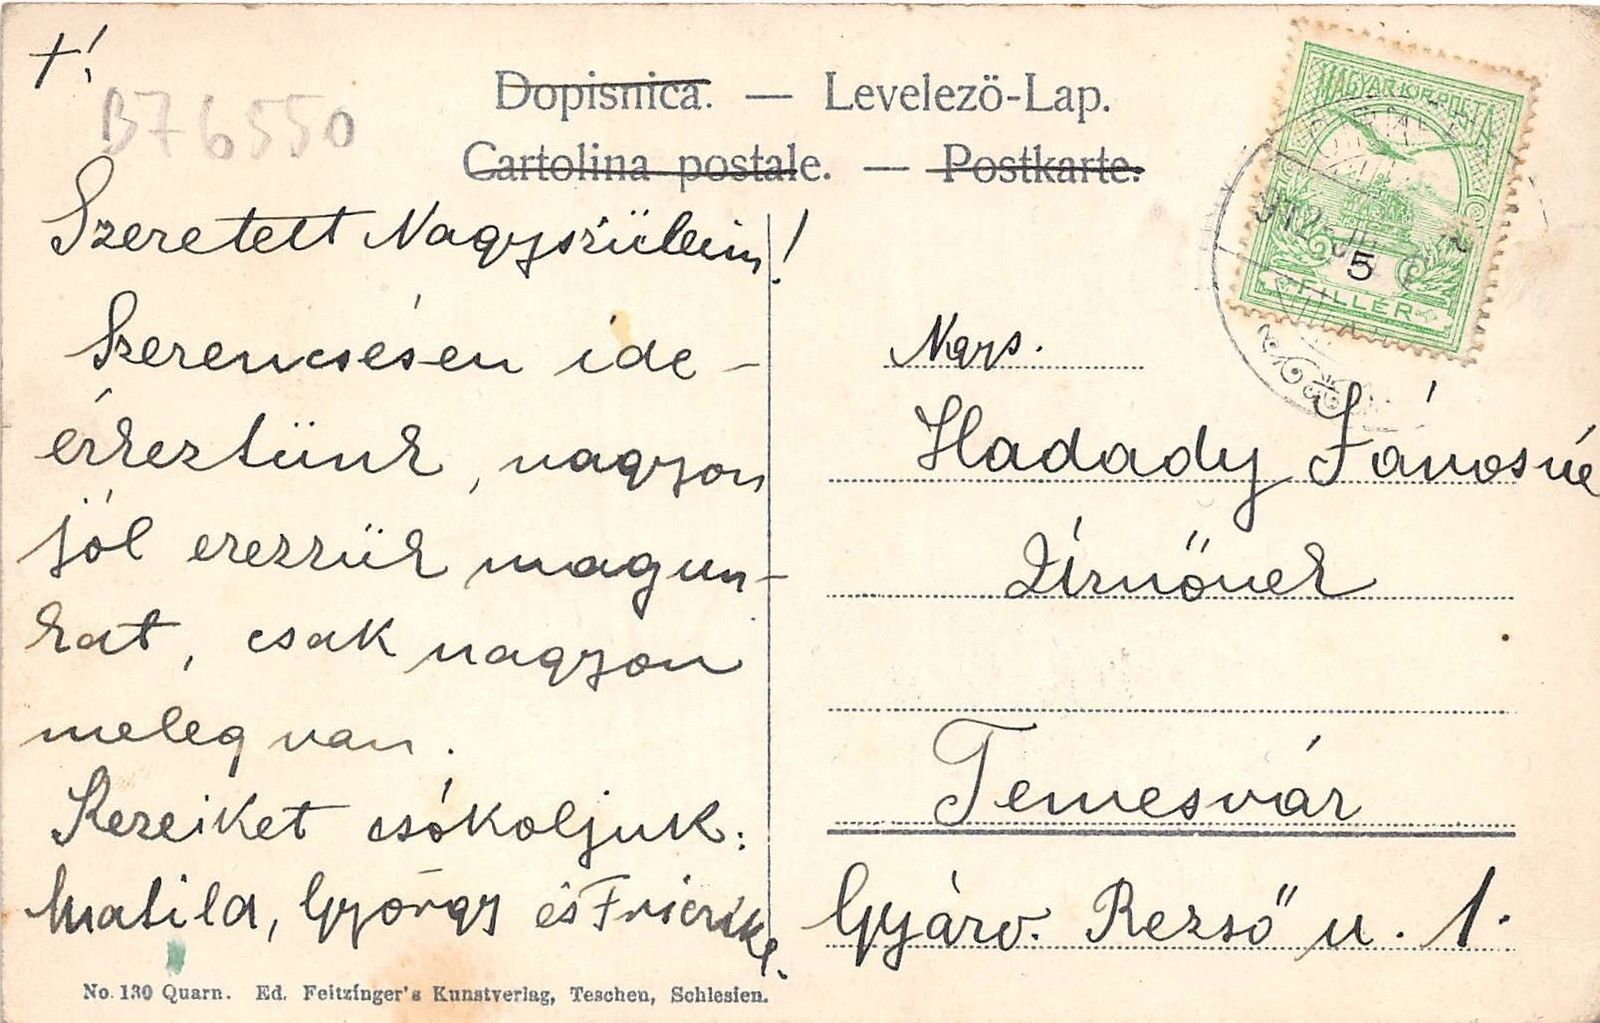 +!
B76550
Dopisnica. — Levelezö-Lap.
Cartolina postale. — Postkarte.
MAGYAR KIR. POSTA
912 JUL
5
FILLÉR
Szeretett Nagyszüleim!
Szerencsésen ide-
érkeztünk, nagyon
jól érezzük magun-
kat, csak nagyon
meleg van.
Kezeiket csókoljuk:
Matild, György és Fricike.
Nags.
Hadady Jánosné
Úrnőnek
Temesvár
Gyárv. Rezső u. 1.
No. 130 Quarn. Ed. Feitzinger's Kunstverlag, Teschen, Schlesien.